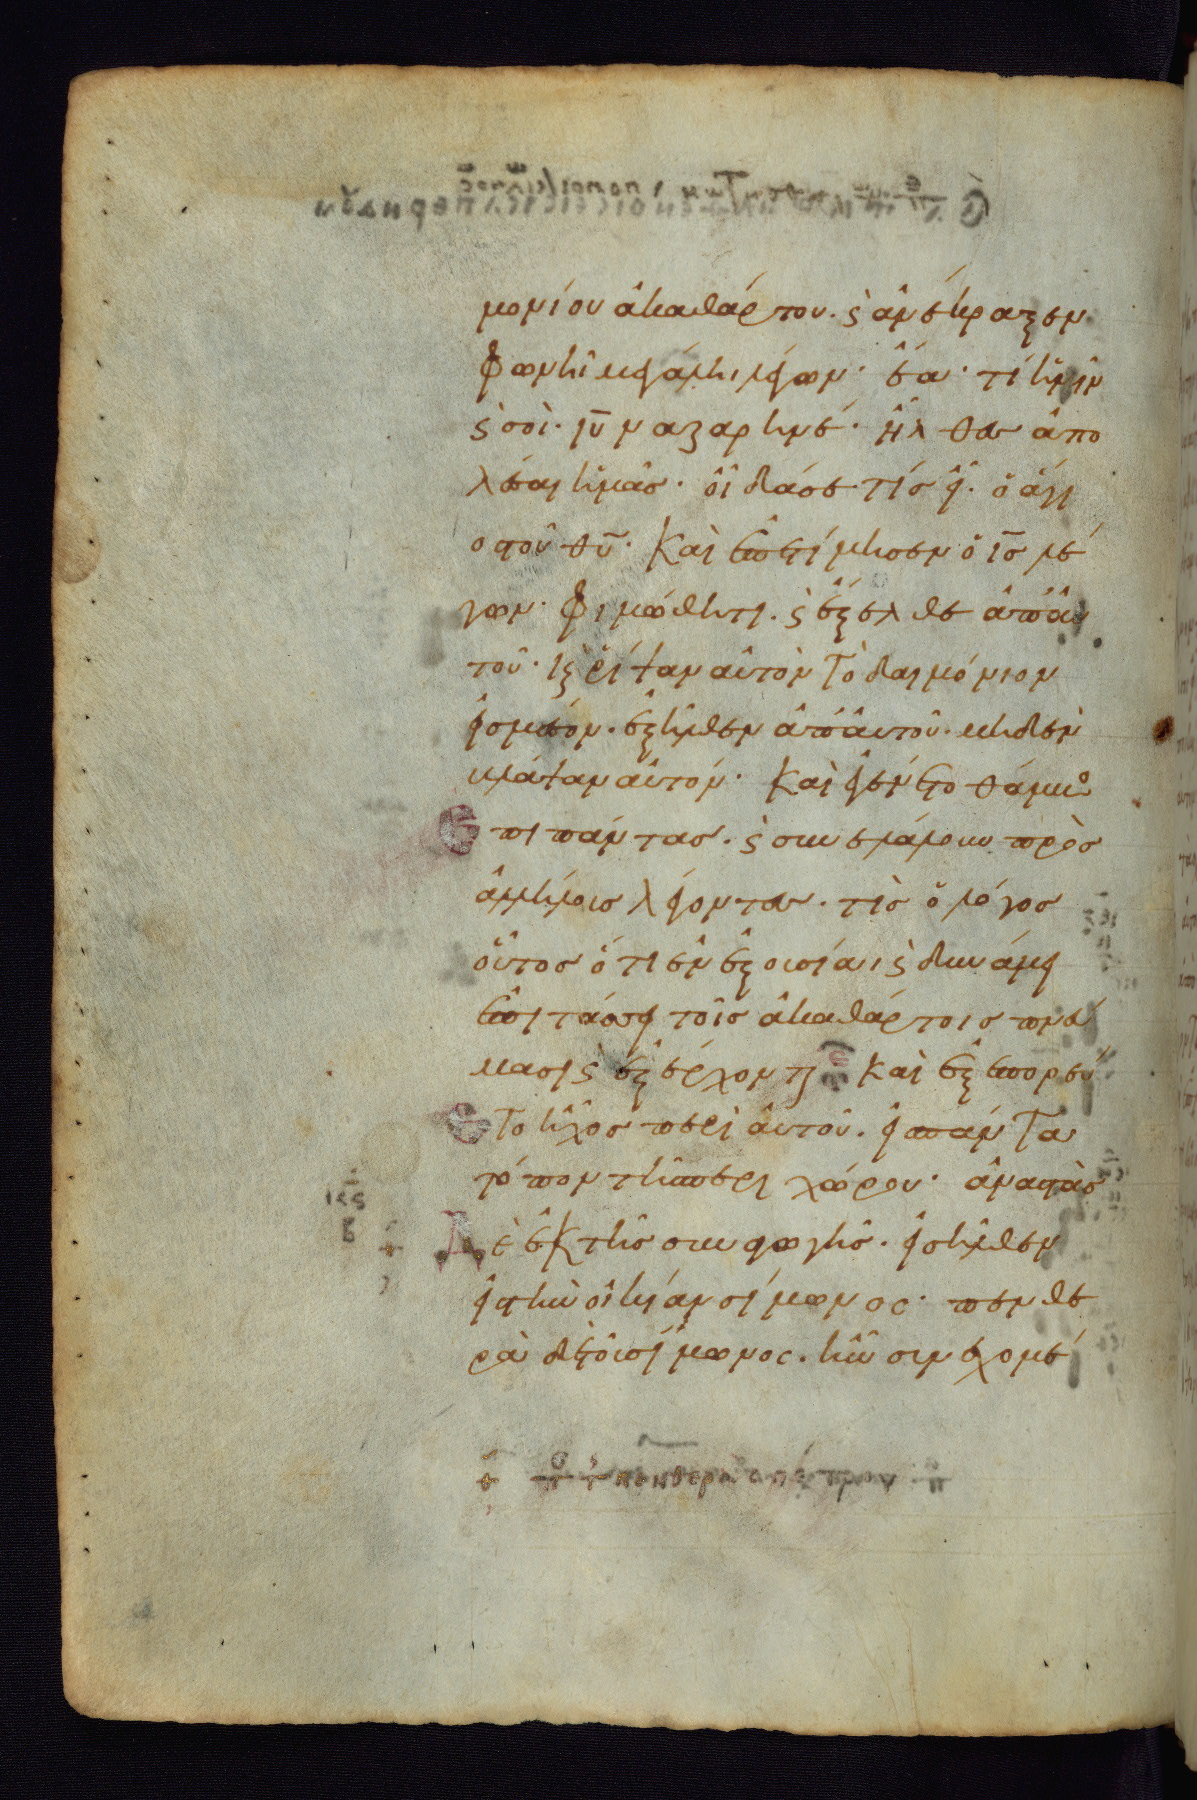 μονίου ἀκαθάρτου. ϛ ἀνέκραξεν
φωνῆ μεγάλη λέγων· ἔα· τί ἡμῖν
ϛ σοὶ· ιῡ ναζαρηνέ· ἦλθες ἀπο
λέσαι ἡμᾶς· οἶδά σε τίς εἶ· ὁ ἅγι
ος τοῦ θῡ· Καὶ ἐπετίμησεν ὁ ις̄ λέ
γων· φιμώθητι. ϛ ἔξελθε ἀπ' αὐ
τοῦ· ϛ ῥίψαν αὐτὸν τὸ δαιμόνιον
εἰς μέσον. ἐξῆλθεν ἀπ' αὐτοῦ. μηδὲν
βλάψαν αὐτόν· Καὶ ἐγένετο θάμβο
ἐπι πάντας. ϛ συνελάλουν πρὸς
ἀλλήλους λέγοντες. τίς ὁ λόγος
οὗτος ὅτι ἐν ἐξουσία ϛ δυνάμει
ἐπιτάσσει τοῖς ἀκαθάρτοις πνέ
μασι ϛ ἐξέρχονται Καὶ ἐξεπορεύ
ετο ἦχος περὶ αὐτοῦ. εἰς πάντα
τόπον τῆς περιχώρου· ἀναστὰς
Δὲ ἐκ τῆς συναγωγῆς. εἰσῆλθεν
εἰς τὴν οἰκίαν σίμωνος· πενθε
ρὰ δὲ τοῦ σίμωνος. ἦν συνεχομέ